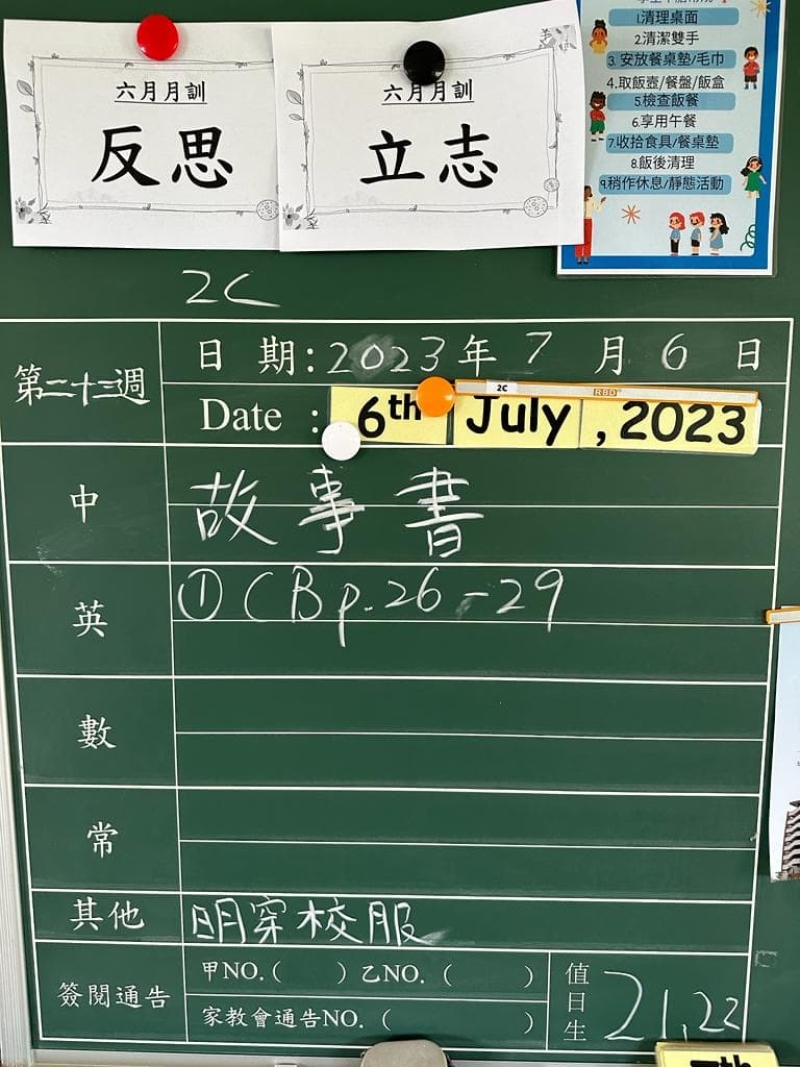 六月月訓
反思
六月月訓
立志
1.清理桌面
2清潔雙手
3. 安放餐桌墊/毛巾
4.取飯壺/餐盤/飯盒
5.檢查飯餐
6.享用午餐
7.收拾食具/餐桌墊
8.飯後清理
9.稍作休息/靜態活動
2C
第二十三週
日 期:2023年 7 月 6 日
2C
RBD
Date : 6th July , 2023
中
故事書
英
①CB p.26-29
數
常
其他
明穿校服
簽閱通告
甲NO.( ) 乙NO. ( )
家教會通告NO. ( )
值日生
21,22